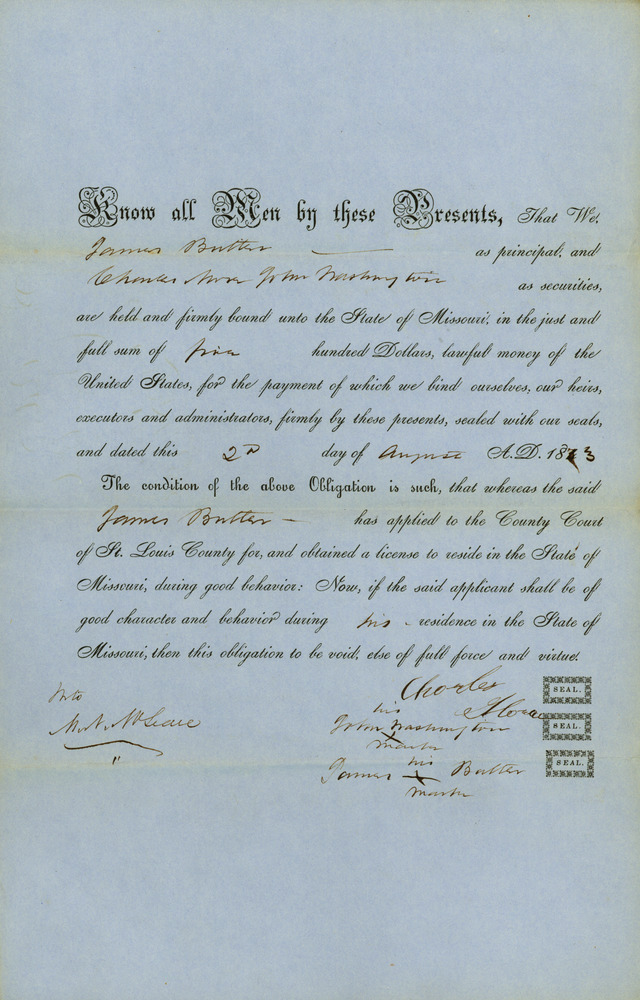 Know all Men by these Presents, That We,
James Butler as principal, and
Charles John Washington as securities,
are held and firmly bound unto the State of Missouri, in the just and
full sum of five hundred Dollars, lawful money of the
United States, for the payment of which we bind ourselves, our heirs,
executors and administrators, firmly by these presents, sealed with our seals,
and dated this 2d day of August A.D. 18 3
The condition of the above Obligation is such, that whereas the said
James Butler — has applied to the County Court
of St. Louis County for, and obtained a license to reside in the State of
Missouri, during good behavior: Now, if the said applicant shall be of
good character and behavior during his residence in the State of
Missouri, then this obligation to be void, else of full force and virtue.
Charles SEAL.
his
John Washington SEAL.
mark
his
James X Butler SEAL.
mark